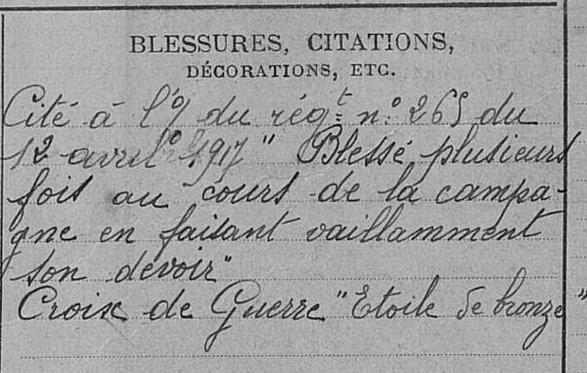 BLESSURES, CITATIONS,
DÉCORATIONS, ETC.
Cité à l'o/ du rég.t n.o 265 du
12 avril 1917 " Blessé plusieurs
fois au cours de la campa-
gne en faisant vaillamment
son devoir"
Croix de Guerre "Etoile de bronze"